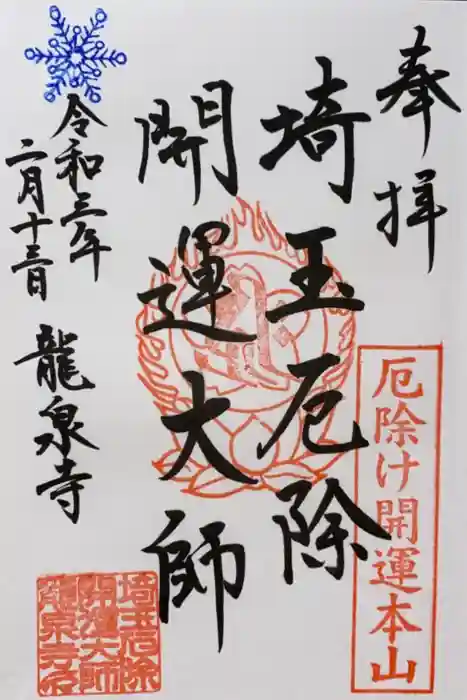 奉拝
厄除け開運本山
埼玉厄除
開運大師
令和三年
二月十三日
龍泉寺
埼玉厄除
開運大師
龍泉寺